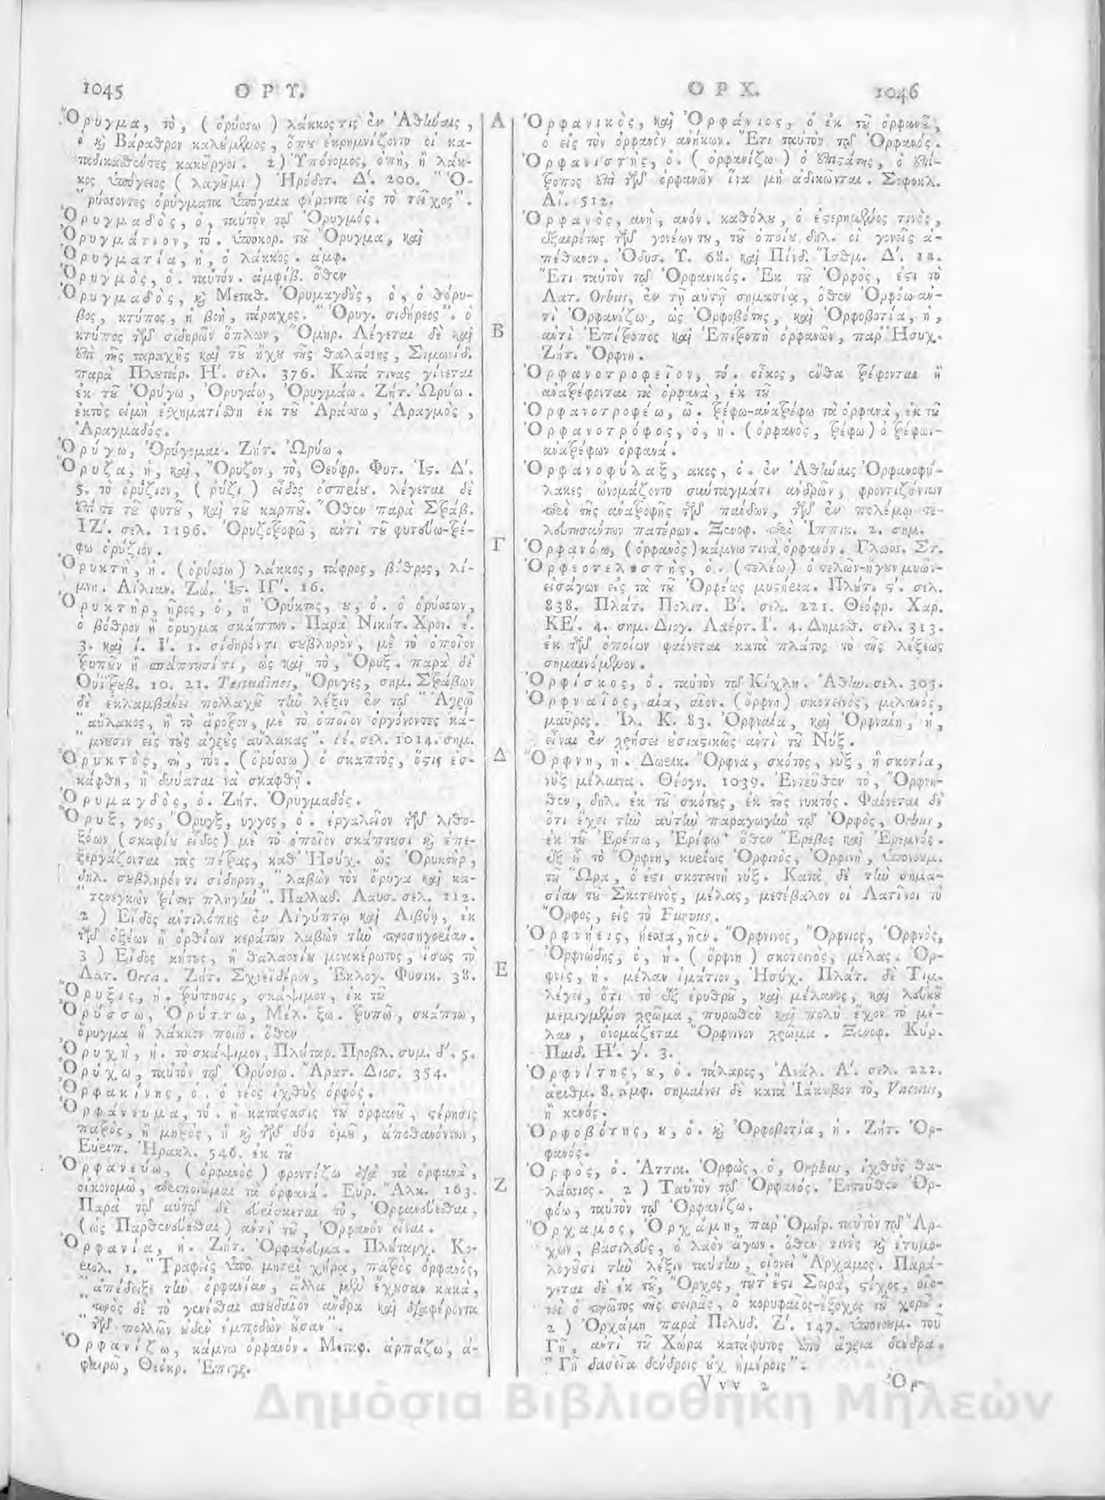 1045 Ο Ρ Υ.
Ὄρυγμα, τὸ, ( ὀρύσσω ) λάκκος τις ἐν Ἀθήναις,
ὁ ϗ Βάραθρον καλούμενος, ὅπου ἐκρημνίζοντο οἱ κα-
ταδικασθέντες κακοῦργοι. 2) Ὑπόνομος, ὀπὴ, ἢ λάκ-
κος ὑπόγειος ( λαγοῦμι ) Ἡρόδοτ. Δ΄. 200. " Ὀ-
" ρύσσοντες ὀρύγματα ὑπόγαια φέροντα εἰς τὸ τεῖχος".
Ὀρυγμαδὸς, ὁ, ταὐτὸν τῷ Ὀρυγμός.
Ὀρυγμάτιον, τὸ. ὑποκορ. τοῦ Ὄρυγμα, καὶ
Ὀρυγματία, ἡ, ὁ λάκκος. ἀμφ.
Ὀρυγμὸς, ὁ. ταὐτόν. ἀμφίβ. ὅθεν
Ὀρυγμαδὸς, ϗ Μεταθ. Ὀρυμαγδὸς, ὁ, ὁ θόρυ-
βος, κτύπος, ἢ βοὴ, τάραχος. " Ὀρυγ. σιδήρεος". ὁ
κτύπος τῶν σιδηρῶν ὅπλων, Ὅμηρ. Λέγεται δὲ καὶ
ἐπὶ τῆς ταραχῆς καὶ τοῦ ἤχου τῆς θαλάσσης, Σιμωνίδ.
παρὰ Πλουτάρ. Η΄. σελ. 376. Κατά τινας γίνεται
ἐκ τοῦ Ὀρύγω, Ὀρυγάω, Ὀρυγμάω. Ζήτ. Ὠρύω.
ἐκτὸς εἰμὴ ἐσχηματίσθη ἐκ τοῦ Ἀράσσω, Ἀραγμὸς,
Ἀραγμαδός.
Ὀρύγω, Ὀρύγομαι. Ζήτ. Ὠρύω.
Ὄρυζα, ἡ, καὶ, Ὄρυζον, τὸ, Θεόφρ. Φυτ. Ἱς. Δ΄.
5. τὸ ὀρύζιον, ( ρύζι ) εἶδος ὀσπρίου. λέγεται δὲ
ἐπί τε τοῦ φυτοῦ, καὶ τοῦ καρποῦ. Ὅθεν παρὰ Στράβ.
ΙΖ΄. σελ. 1196. Ὀρυζοτροφῶ, ἀντὶ τοῦ φυτεύω-τρέ-
φω ὀρύζιον.
Ὀρυκτὴ, ἡ. ( ὀρύσσω ) λάκκος, τάφρος, βόθρος, λί-
μνη. Αἰλιαν. Ζώ. Ἱς. ΙΓ΄. 16.
Ὀρυκτὴρ, ῆρος, ὁ, ἢ Ὀρύκτης, ου, ὁ. ὁ ὀρύσσων,
ὁ βόθρον ἢ ὄρυγμα σκάπτων. Παρὰ Νικήτ. Χρον. έ.
3. καὶ ί. Γ΄. 1. σίδηρόν τι σουβληρὸν, μὲ τὸ ὁποῖον
τρυποῦν ἢ σκάπτουσί τι, ὡς καὶ τὸ, Ὄρυξ. παρὰ δὲ
Οὐϊτρουβ. 10. 21. Testudines, Ὄρυγες, σημ. Στράβων
δὲ ἐκλαμβάνει πολλαχοῦ τὴν λέξιν ἐν τῷ " Ἀγροῦ
" αὔλακος, ἢ τὸ ἄροτρον, μὲ τὸ ὁποῖον ὀργόνοντες κά-
" μνουσιν εἰς τοὺς ἀγροὺς αὔλακας". ιέ. σελ. 1014. σημ.
Ὀρυκτὸς, τὴ, τόν. ( ὀρύσσω ) ὁ σκαπτὸς, ὅστις ἐσ-
κάφθη, ἢ δύναται νὰ σκαφθῇ.
Ὀρυμαγδὸς, ὁ. Ζήτ. Ὀρυγμαδός.
Ὄρυξ, γος, Ὄρυγξ, υγγος, ὁ. ἐργαλεῖον τῶν λιθο-
ξόων (σκαφίου εἶδος) μὲ τὸ ὁποῖον σκάπτουσι ϗ ἐπε-
ξεργάζονται τὰς πέτρας, καθ' Ἡσύχ. ὡς Ὀρυκτὴρ,
δηλ. σουβληρόν τι σίδηρον, " λαβὼν τὸν ὄρυγα καὶ κα-
" τενεγκὼν τρίτην πληγὴν". Παλλαδ. Λαυσ. σελ. 112.
2 ) Εἶδος ἀντιλόπης ἐν Αἰγύπτῳ καὶ Λιβύῃ, ἐκ
τῶν ὀξέων ἢ ὀρθίων κεράτων λαβὼν τὴν προσηγορίαν.
3 ) Εἶδος κήτους, ἢ θαλασσίου μονοκέρωτος, ἴσως τὸ
Λατ. Orca. Ζήτ. Σχνειδέρον, Ἐκλογ. Φυσικ. 38.
Ὄρυξις, ἡ. τρύπησις, σκάψιμον, ἐκ τοῦ
Ὀρύσσω, Ὀρύττω, Μέλ. ξω. τρυπῶ, σκάπτω,
ὄρυγμα ἢ λάκκον ποιῶ. ὅθεν
Ὀρυχὴ, ἡ. τὸ σκάψιμον, Πλούταρ. Προβλ. συμ. δ΄. 5.
Ὀρύχω, ταὐτὸν τῷ Ὀρύσσω. Ἄρατ. Διοσ. 354.
Ὀρφακίνης, ὁ. ὁ νέος ἰχθὺς ὀρφός.
Ὀρφάνευμα, τό. ἡ κατάστασις τοῦ ὀρφανοῦ, στέρησις
πατρὸς, ἢ μητρὸς, ἢ ϗ τῶν δύο ὁμοῦ, ἀποθανόντων,
Εὐριπ. Ἡρακλ. 546. ἐκ τοῦ
Ὀρφανεύω, ( ὀρφανὸς ) φροντίζω διὰ τὰ ὀρφανὰ,
οἰκονομῶ, περιποιοῦμαι τὰ ὀρφανά. Εὐρ. Ἄλκ. 163.
Παρὰ τῷ αὐτῷ δὲ εὑρίσκεται τὸ, Ὀρφανεύεσθαι,
( ὡς Παρθενεύεσθαι ) ἀντὶ τοῦ, Ὀρφανὸν εἶναι.
Ὀρφανία, ἡ. Ζήτ. Ὀρφάνευμα. Πλούταρχ. Κο-
ριολ. 1. " Τραφεὶς ὑπὸ μητρὶ χήρᾳ, πατρὸς ὀρφανὸς,
" ἀπέδειξε τὴν ὀρφανίαν, ἄλλα μὲν ἔχουσαν κακὰ,
" πρὸς δὲ τὸ γενέσθαι σπουδαῖον ἄνδρα καὶ διαφέροντα
" τῶν πολλῶν οὐδὲν ἐμποδὼν οὖσαν".
Ὀρφανίζω, κάμνω ὀρφανόν. Μεταφ. ἁρπάζω, ἀ-
φαιρῶ, Θεόκρ. Ἐπιγρ.
Α
Β
Γ
Δ
Ε
Ζ
Ο Ρ Χ. 1046
Ὀρφανικὸς, καὶ Ὀρφάνιος, ὁ ἐκ τοῦ ὀρφανοῦ,
ὁ εἰς τὸν ὀρφανὸν ἀνήκων. Ἔτι ταὐτὸν τῷ Ὀρφανός.
Ὀρφανιστὴς, ὁ. ( ὀρφανίζω ) ὁ ἐπιστάτης, ὁ ἐπί-
τροπος ἐπὶ τῶν ὀρφανῶν ἵνα μὴ ἀδικῶνται. Σοφοκλ.
Αἴ. 512.
Ὀρφανὸς, ανὴ, ανόν. καθόλου, ὁ ἐστερημένος τινὸς,
ἐξαιρέτως τῶν γονέων του, τοῦ ὁποίου δηλ. οἱ γονεῖς ἀ-
πέθανον. Ὀδυσ. Υ. 68. καὶ Πίνδ. Ἴσθμ. Δ΄. 12.
Ἔτι ταὐτὸν τῷ Ὀρφανικός. Ἐκ τοῦ Ὀρφὸς, ἐστὶ τὸ
Λατ. Orbus, ἐν τῇ αὐτῇ σημασίᾳ, ὅθεν Ὀρφόω ἀν-
τὶ Ὀρφανίζω, ὡς Ὀρφοβότης, καὶ Ὀρφοβοτία, ἡ,
ἀντὶ Ἐπίτροπος καὶ Ἐπιτροπὴ ὀρφανῶν, παρ' Ἡσυχ.
Ζήτ. Ὄρφνη.
Ὀρφανοτροφεῖον, τό. οἶκος, ἔνθα τρέφονται ἢ
ἀνατρέφονται τὰ ὀρφανὰ, ἐκ τοῦ
Ὀρφανοτροφέω, ῶ. τρέφω-ἀνατρέφω τὰ ὀρφανὰ, ἐκ τοῦ
Ὀρφανοτρόφος, ὁ, ἡ. ( ὀρφανὸς, τρέφω ) ὁ τρέφων-
ἀνατρέφων ὀρφανά.
Ὀρφανοφύλαξ, ακος, ὁ. ἐν Ἀθήναις Ὀρφανοφύ-
λακες ὠνομάζοντο συντάγματι ἀνδρῶν, φροντιζόντων
περὶ τῆς ἀνατροφῆς τῶν παίδων, τῶν ἐν πολέμῳ τε-
λευτησάντων πατέρων. Ξενοφ. περὶ Ἱππικ. 2. σημ.
Ὀρφανόω, (ὀρφανὸς) κάμνω τινὰ ὀρφανόν. Γλωσ. Στ.
Ὀρφεοτελεστὴς, ὁ. (τελέω) ὁ τελῶν-ἤγουν μυῶν-
εἰσάγων εἰς τὰ τοῦ Ὀρφέως μυστήρια. Πλούτ. ς΄. σελ.
838. Πλάτ. Πολιτ. Β΄. σελ. 221. Θεόφρ. Χαρ.
ΚΕ΄. 4. σημ. Διογ. Λαέρτ. Γ΄. 4. Δημοσθ. σελ. 313.
ἐκ τῶν ὁποίων φαίνεται κατὰ πλάτος τὸ τῆς λέξεως
σημαινόμενον.
Ὀρφίσκος, ὁ. ταὐτὸν τῷ Κίχλη. Ἀθήν. σελ. 305.
Ὀρφναῖος, αία, αῖον. (ὄρφνη) σκοτεινὸς, μελανὸς,
μαῦρος. Ἰλ. Κ. 83. Ὀρφναία, καὶ Ὀρφναίη, ἡ,
εἶναι ἐν χρήσει οὐσιαστικῶς ἀντὶ τοῦ Νύξ.
Ὄρφνη, ἡ. Δωρικ. Ὄρφνα, σκότος, νὺξ, ἢ σκοτία,
νὺξ μέλαινα. Θέογν. 1039. Ἐντεῦθεν τὸ, Ὄρφνη-
θεν, δηλ. ἐκ τοῦ σκότους, ἐκ τῆς νυκτός. Φαίνεται δὲ
ὅτι ἔχει τὴν αὐτὴν παραγωγὴν τῷ Ὀρφὸς, Orbus,
ἐκ τοῦ Ἐρέπω, Ἐρέφω ὅθεν Ἔρεβος καὶ Ἐρεμνός.
ἐξ οὗ τὸ Ὄρφνη, κυρίως Ὀρφινὸς, Ὀρφινὴ, ὑπονοουμ.
τοῦ Ὥρα, ὅ ἐστι σκοτεινὴ νύξ. Κατὰ δὲ τὴν σημα-
σίαν τοῦ Σκοτεινὸς, μέλας, μετέβαλον οἱ Λατῖνοι τὸ
Ὄρφος, εἰς τὸ Furvus.
Ὀρφνήεις, ήεσσα, ῆεν. Ὄρφνινος, Ὄρφνιος, Ὀρφνὸς,
Ὀρφνώδης, ὁ, ἡ. ( ὄρφνη ) σκοτεινὸς, μέλας. Ὀρ-
φνὶς, ἡ. μέλαν ἱμάτιον, Ἡσύχ. Πλάτ. δὲ Τιμ.
λέγει, ὅτι τὸ ἐξ ἐρυθροῦ, καὶ μέλανος, καὶ λευκοῦ
μεμιγμένον χρῶμα, πυρωθὲν καὶ πολὺ ἔχον τὸ μέ-
λαν, ὀνομάζεται Ὄρφνινον χρῶμα. Ξενοφ. Κύρ.
Παιδ. Η΄. γ΄. 3.
Ὀρφνίτης, ου, ὁ. τάλαρος, Ἀνάλ. Α΄. σελ. 222.
ἀριθμ. 8. ἀμφ. σημαίνει δὲ κατὰ Ἰάκωβον τὸ, Vacuus,
ἢ κενός.
Ὀρφοβότης, ου, ὁ. ϗ Ὀρφοβοτία, ἡ. Ζήτ. Ὀρ-
φανός.
Ὀρφὸς, ὁ. Ἀττικ. Ὀρφὼς, ὁ, Orphus, ἰχθὺς θα-
λάσσιος. 2 ) Ταὐτὸν τῷ Ὀρφανός. Ἐντεῦθεν Ὀρ-
φόω, ταὐτὸν τῷ Ὀρφανίζω.
Ὄρχαμος, Ὀρχάμη, παρ' Ὁμήρ. ταὐτὸν τῷ Ἄρ-
χων, βασιλεὺς, ὁ λαὸν ἄγων. ὅθεν τινὲς ϗ ἐτυμο-
λογοῦσι τὴν λέξιν ταύτην, οἱονεὶ Ἄρχαμος. Παρά-
γεται δὲ ἐκ τοῦ, Ὄρχος, τοῦτ' ἔστι Σειρὰ, στίχος, οἱο-
νεὶ ὁ πρῶτος τῆς σειρᾶς, ὁ κορυφαῖος-ἔξοχος τοῦ χοροῦ.
2 ) Ὀρχάμη παρὰ Πολυδ. Ζ΄. 147. ὑπονοουμ. τοῦ
Γῆ, ἀντὶ τοῦ Χώρα κατάφυτος ὑπὸ ἄγρια δένδρα.
" Γῆ δασεῖα δένδροις οὐχ ἡμέροις".
V v v 2 Ὀρ-
Δημόσια Βιβλιοθήκη Μηλεών